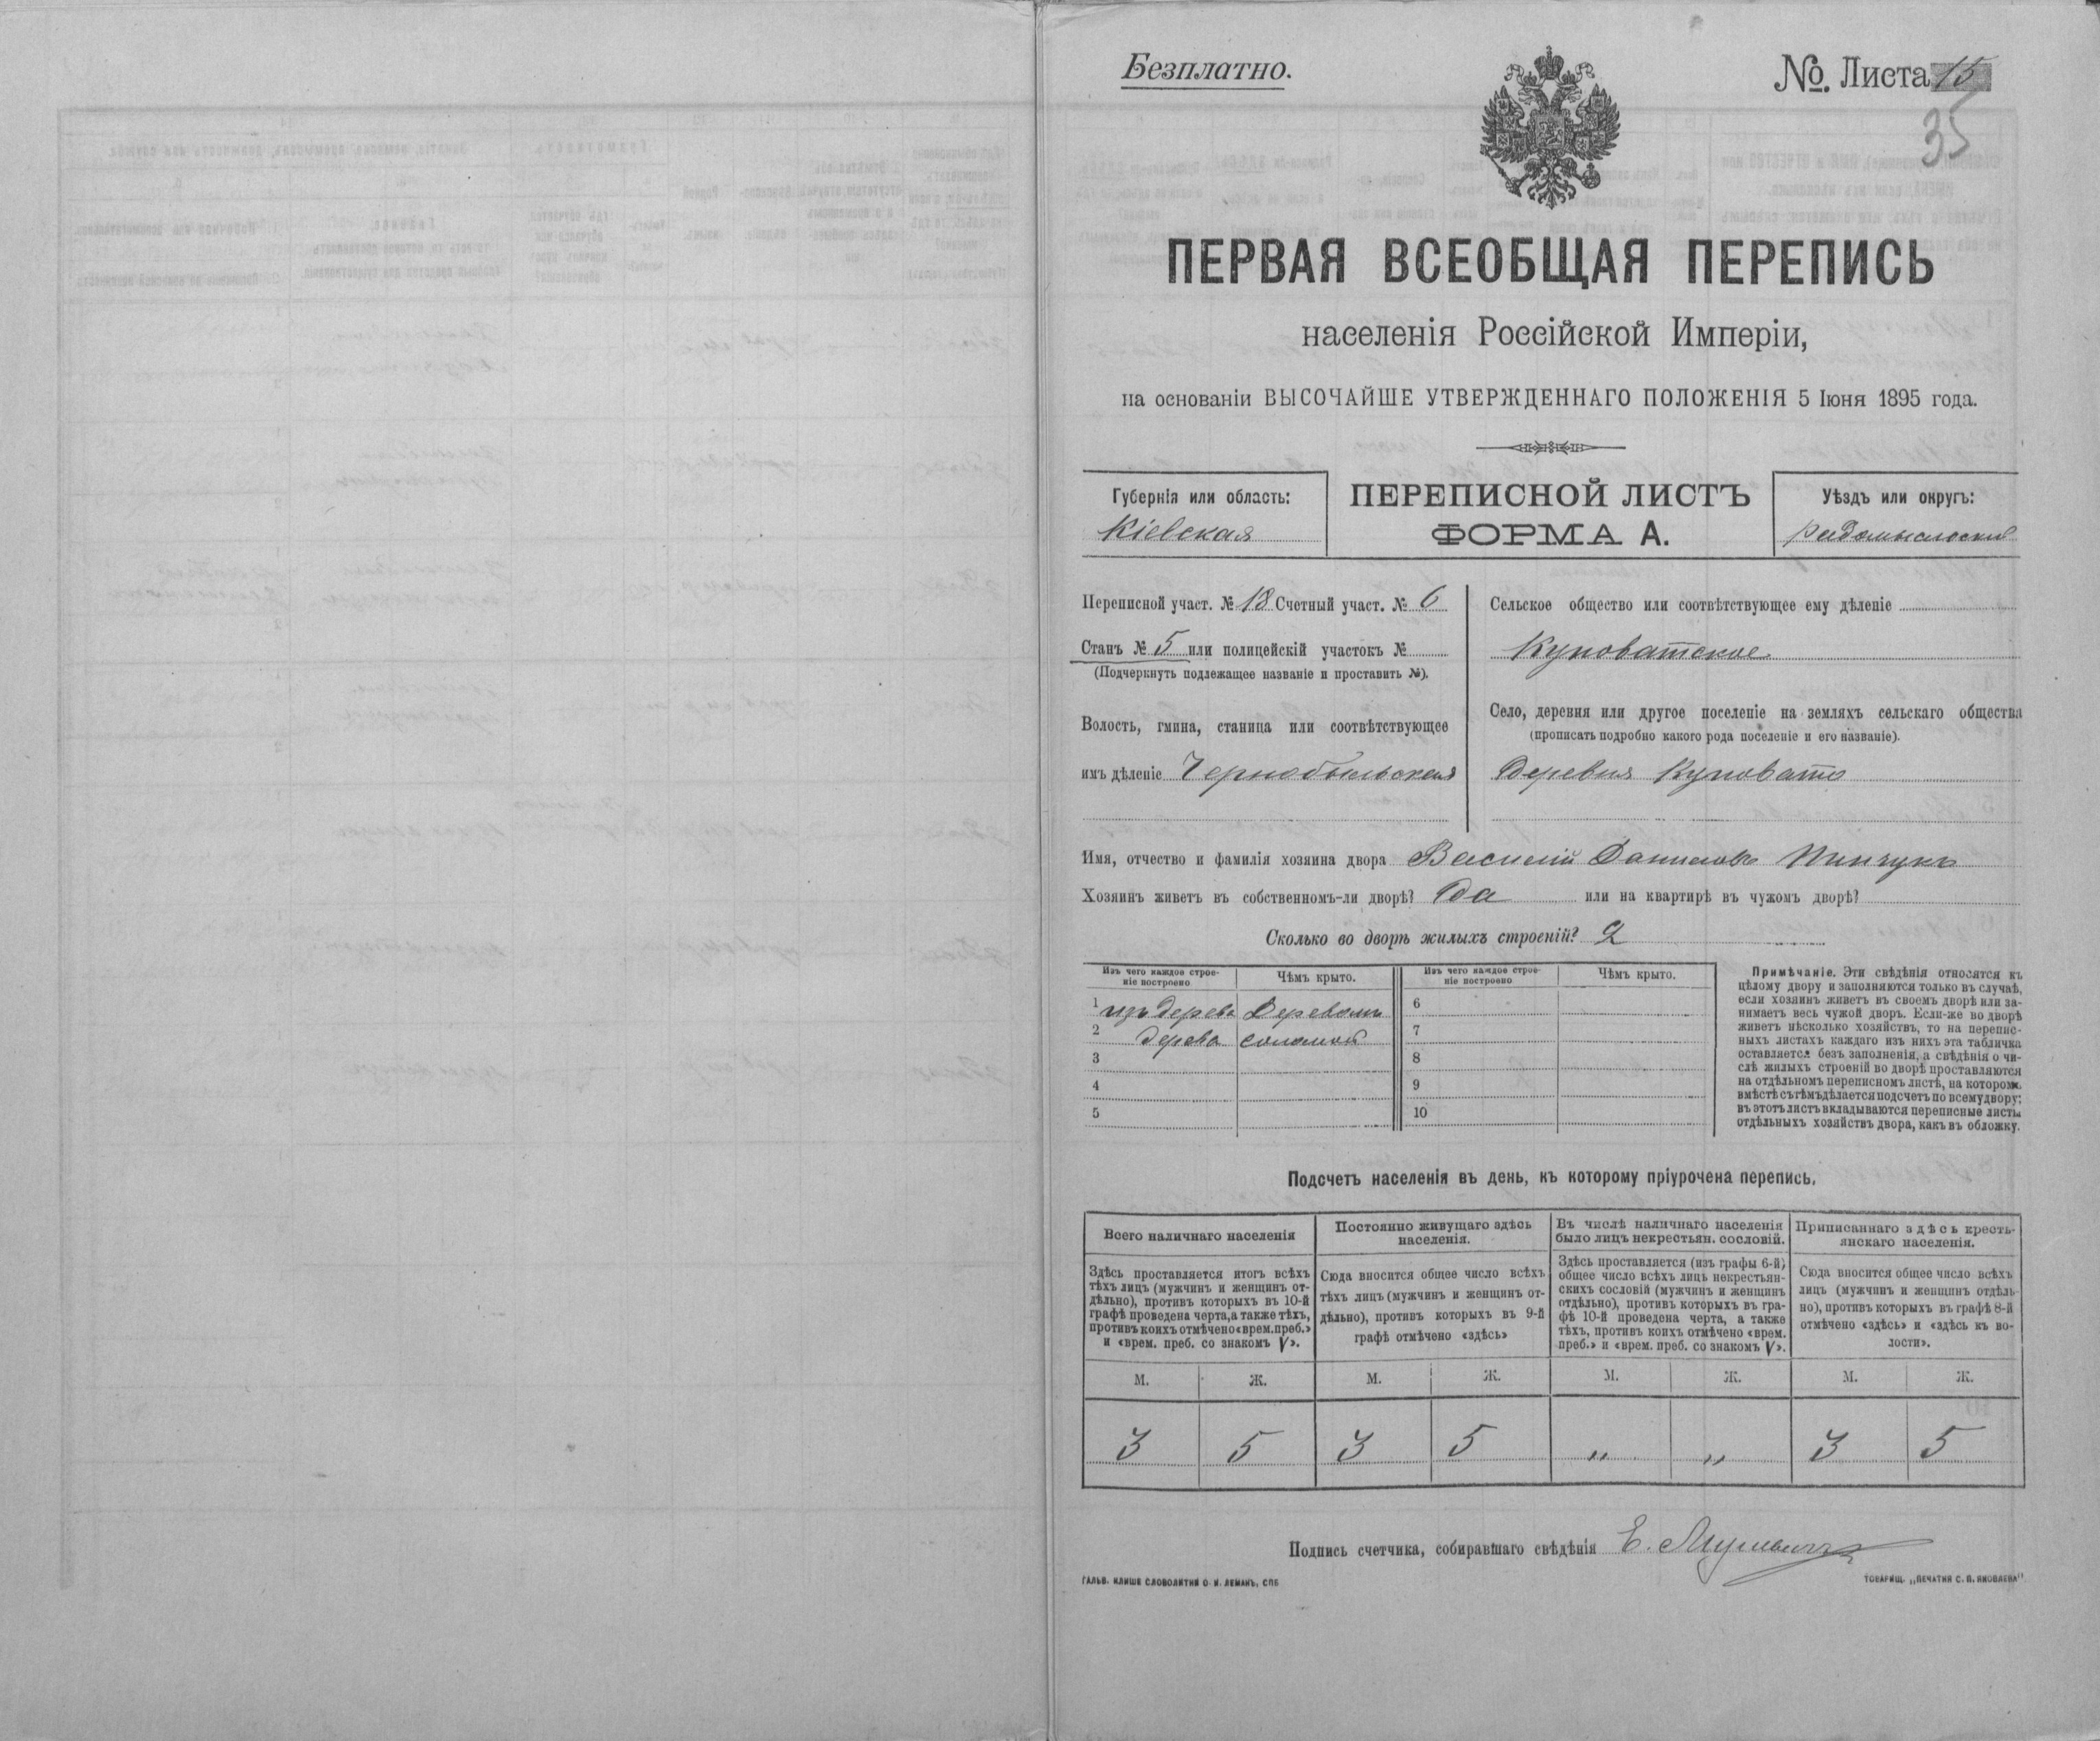 Безплатно.
№. Листа 15
35
ПЕРВАЯ ВСЕОБЩАЯ ПЕРЕПИСЬ
населенія Россійской Имперіи,
на основаніи ВЫСОЧАЙШЕ УТВЕРЖДЕННАГО ПОЛОЖЕНІЯ 5 Іюня 1895 года.
Губернія или область:
Кіевская
ПЕРЕПИСНОЙ ЛИСТЪ
ФОРМА А.
Уѣздъ или округъ:
Радомысльскій
Переписной участ. № 18 Счетный участ. № 6
Станъ № 5 или полицейскій участокъ №
(Подчеркнуть подлежащее названіе и проставить №).
Волость, гмина, станица или соотвѣтствующее
имъ дѣленіе Чернобыльская
Сельское общество или соотвѣтствующее ему дѣленіе
Куповатское
Село, деревня или другое поселеніе на земляхъ сельскаго общества
(прописать подробно какого рода поселеніе и его названіе).
Деревня Куповато
Имя, отчество и фамилія хозяина двора Василій Даниловъ
Хозяинъ живетъ въ собственномъ-ли дворѣ? Да или на квартирѣ въ чужомъ дворѣ?
Сколько во дворѣ жилыхъ строеній? 2
Изъ чего каждое строе-
ніе построено
Чѣмъ крыто.
1 изъ дерева Деревомъ
2 дерева соломой
3
4
5
Изъ чего каждое строе-
ніе построено
Чѣмъ крыто.
6
7
8
9
10
Примѣчаніе. Эти свѣдѣнія относятся къ
цѣлому двору и заполняются только въ случаѣ,
если хозяинъ живетъ въ своемъ дворѣ или за-
нимаетъ весь чужой дворъ. Если-же во дворѣ
живетъ нѣсколько хозяйствъ, то на перепис-
ныхъ листахъ каждаго изъ нихъ эта табличка
оставляется безъ заполненія, а свѣдѣнія о чи-
слѣ жилыхъ строеній во дворѣ проставляются
на отдѣльномъ переписномъ листѣ, на которомъ
вмѣстѣ съ тѣмъ дѣлается подсчетъ по всему двору;
въ этотъ листъ вкладываются переписные листы
отдѣльныхъ хозяйствъ двора, какъ въ обложку.
Подсчетъ населенія въ день, къ которому пріурочена перепись.
Всего наличнаго населенія
Здѣсь проставляется итогъ всѣхъ
тѣхъ лицъ (мужчинъ и женщинъ от-
дѣльно), противъ которыхъ въ 10-й
графѣ проведена черта, а также тѣхъ,
противъ коихъ отмѣчено «врем. преб.»
и «врем. преб. со знакомъ V».
Постоянно живущаго здѣсь
населенія.
Сюда вносится общее число всѣхъ
тѣхъ лицъ (мужчинъ и женщинъ от-
дѣльно), противъ которыхъ въ 9-й
графѣ отмѣчено «здѣсь»
Въ числѣ наличнаго населенія
было лицъ некрестьян. сословій.
Здѣсь проставляется (изъ графы 6-й)
общее число всѣхъ лицъ некрестьян-
скихъ сословій (мужчинъ и женщинъ
отдѣльно), противъ которыхъ въ гра-
фѣ 10-й проведена черта, а также
тѣхъ, противъ коихъ отмѣчено «врем.
преб.» и «врем. преб. со знакомъ V».
Приписаннаго здѣсь кресть-
янскаго населенія.
Сюда вносится общее число всѣхъ
лицъ (мужчинъ и женщинъ отдѣль-
но), противъ которыхъ въ графѣ 8-й
отмѣчено «здѣсь» и «здѣсь къ во-
лости».
М. Ж. М. Ж. М. Ж. М. Ж.
3 5 3 5 „ „ 3 5
Подпись счетчика, собиравшаго свѣдѣнія Е.
ГАЛЬВ. КЛИШЕ СЛОВОЛИТНИ О. И. ЛЕМАНЪ, СПБ
ТОВАРИЩ. „ПЕЧАТНЯ С. П. ЯКОВЛЕВА"